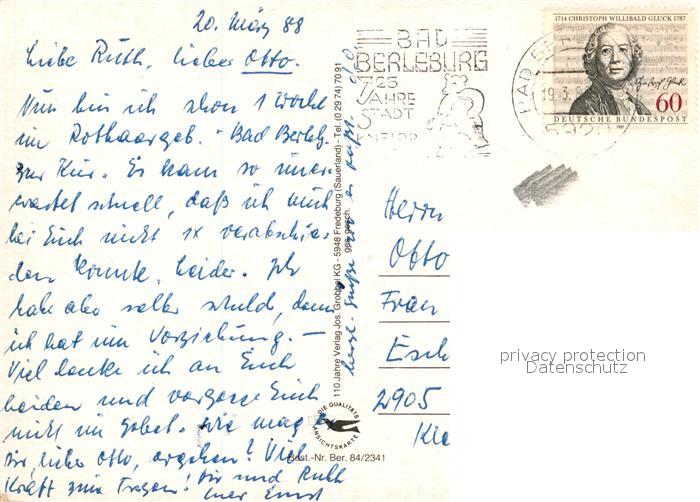 20. März 88
Liebe Ruth, lieber Otto.
Nun bin ich schon 1 Woche
im Rothaargeb. - Bad Berleb.
zur Kur. Es kam so uner-
wartet schnell, daß ich mich
bei Euch nicht 1x verabschie-
den konnte, leider. Ich
habe also selber schuld, denn
ich bat um Vorziehung. -
Viel denke ich an Euch
beiden und vergesse Euch
nicht im Gebet. Wie mag es
Dir, lieber Otto, ergehen? Viel
Kraft zum Tragen! Dir und Ruth
Euer Ernst
herzl. Grüße
110 Jahre Verlag Jos. Grobbel KG - 5948 Fredeburg (Sauerland) - Tel. (0 29 74) 70 91
ges. gesch.
DIE QUALITÄTS
ANSICHTSKARTE
Best.-Nr. Ber. 84/2341
BAD
BERLEBURG
725
JAHRE
STADT
19.3.8
5920
1714 CHRISTOPH WILLIBALD GLUCK 1787
60
DEUTSCHE BUNDESPOST
Herrn
Otto
Frau
Esch
2905
Kle
privacy protection
Datenschutz